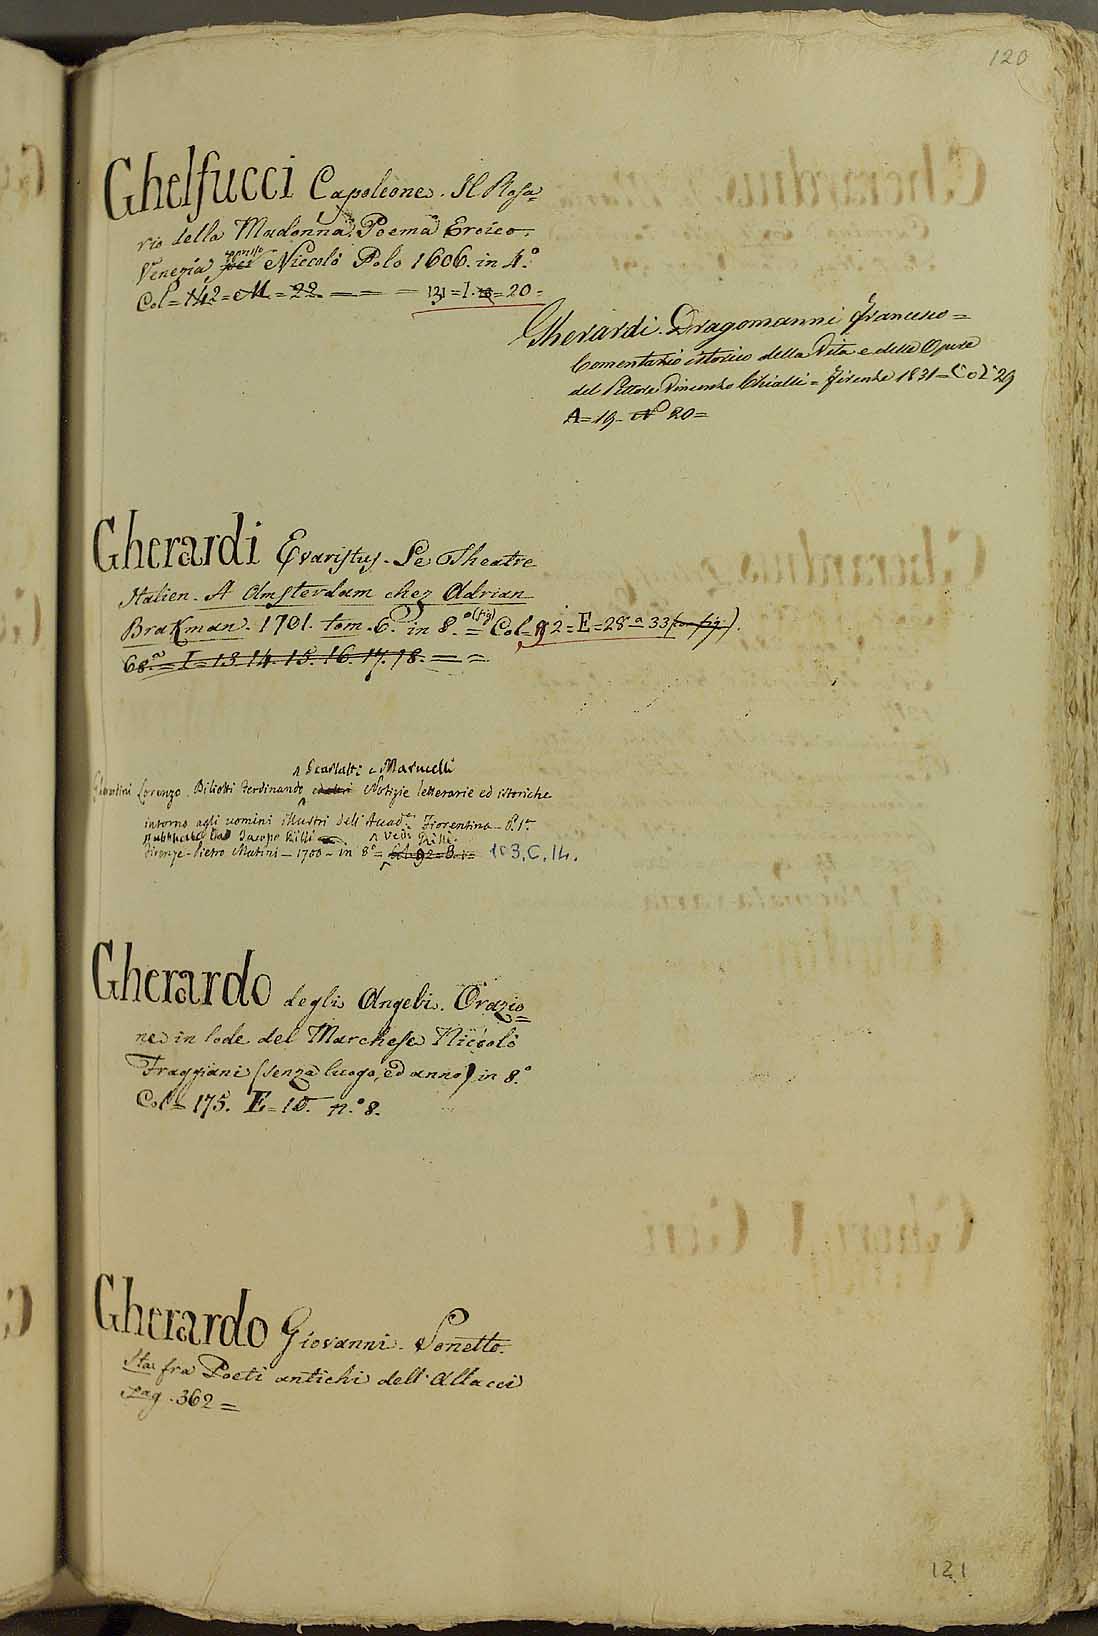 120
Ghelfucci Capoleone. Il Rosa=
rio della Madonna. Poema Eroico.
Venezia, appresso Niccolò Polo 1606. in 4.°
Col = 142 = M = 22 — — — 131 = I. = 20 =
Gherardi. Dragomanni Francesco =
Comentario istorico della Vita e delle Opere
del Pittore Vincenzo Chialli = Firenze 1831 = Col 29
A = 19 - N° 20 =
Gherardi Evaristus. Le Theatre
Italien. A Amsterdam chez Adrian
Brakman. 1701. tom. 6. in 8.° (fig) = Col = 92 = E = 28 a 33 (con fig.).
68 = I = 13. 14. 15. 16. 17. 18. — =
Scarlatti e Marucelli
Gherardini Lorenzo. Biliotti Ferdinando ed altri Notizie letterarie ed istoriche
intorno agli uomini illustri dell' Accad.ª Fiorentina - P. 1ª
pubblicate da Jacopo Rilli vedi Rilli.
Firenze - Pietro Matini - 1700 - in 8° = Col. 92 = B. 1 = 103. C. 14.
Gherardo degli Angeli. Orazio=
ne in lode del Marchese Niccolò
Fraggiani (senza luogo, ed anno) in 8.°
Col = 175. E = 10. n.° 8.
Gherardo Giovanni. Sonetto.
Sta fra Poeti antichi dell' Allacci
pag. 362 =
121